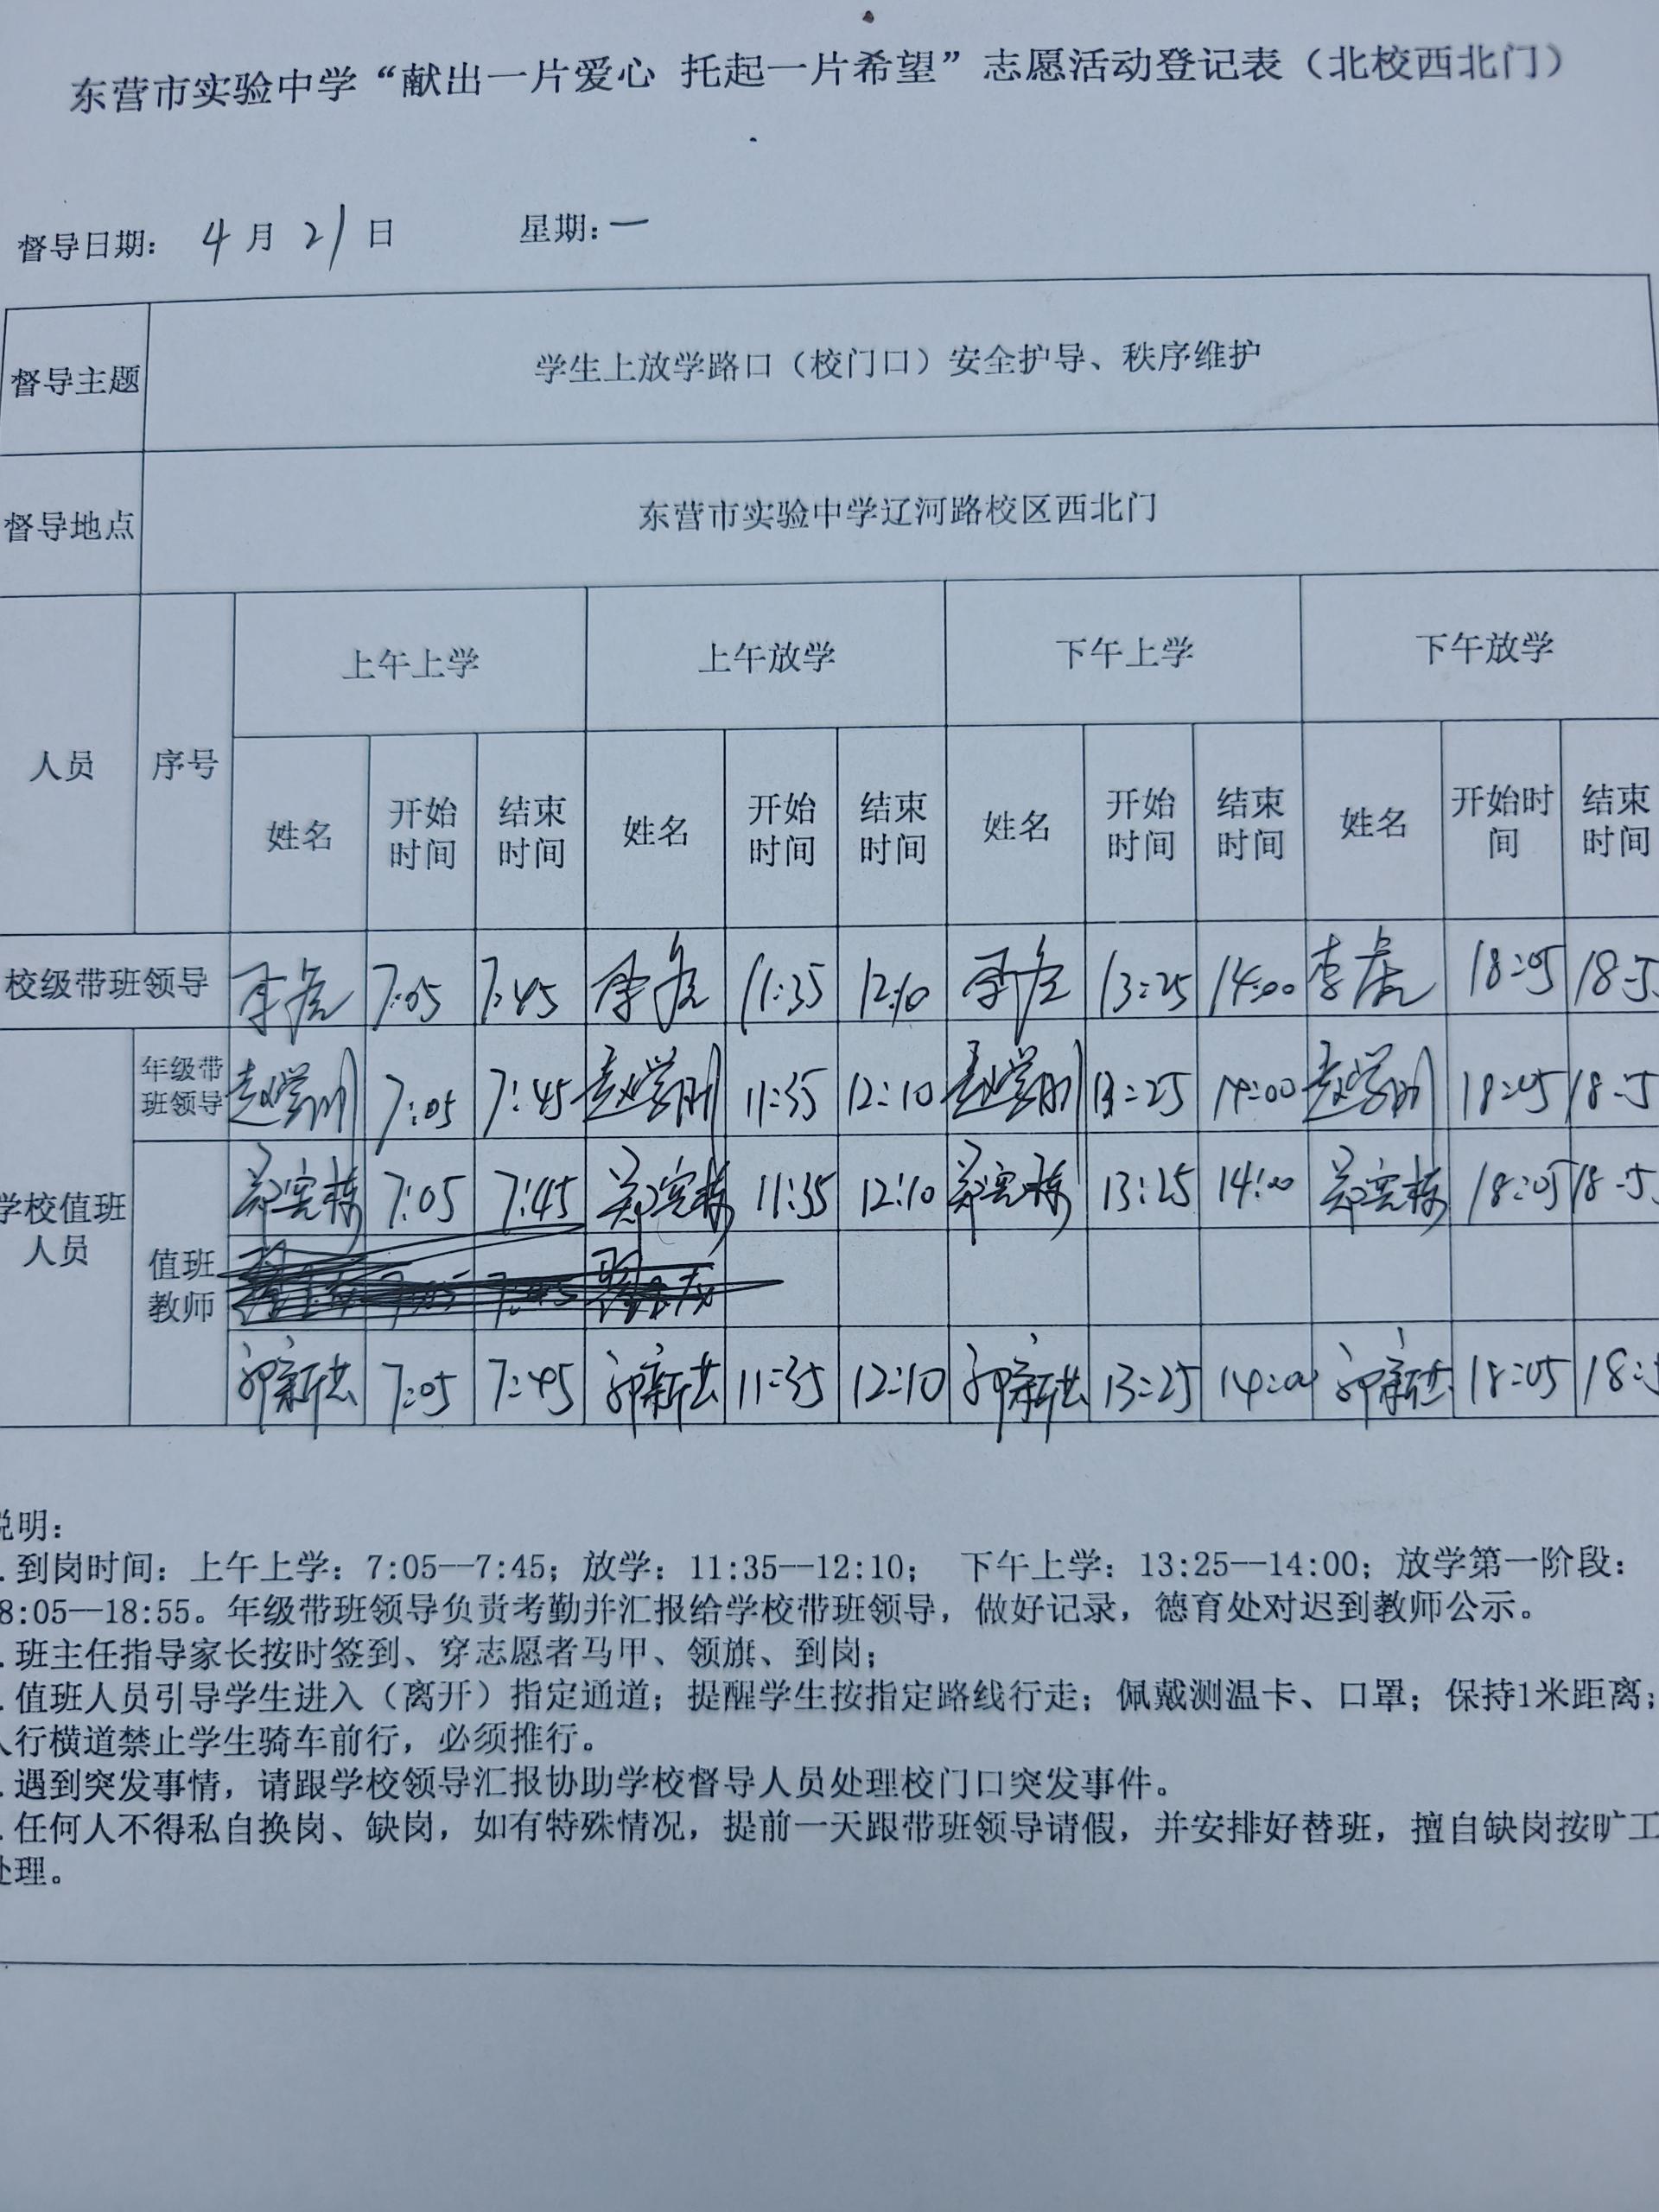 东营市实验中学“献出一片爱心 托起一片希望”志愿活动登记表（北校西北门）
督导日期： 4 月 21 日 星期：一
督导主题 学生上放学路口（校门口）安全护导、秩序维护
督导地点 东营市实验中学辽河路校区西北门
人员 序号 上午上学 上午放学 下午上学 下午放学
姓名 开始时间 结束时间 姓名 开始时间 结束时间 姓名 开始时间 结束时间 姓名 开始时间 结束时间
校级带班领导 7:05 7:45 11:35 12:10 13:25 14:00 18:05 18:5
学校值班人员 年级带班领导 赵学刚 7:05 7:45 赵学刚 11:35 12:10 赵学刚 13:25 14:00 赵学刚 18:05 18:5
值班教师 郑宪栋 7:05 7:45 郑宪栋 11:35 12:10 郑宪栋 13:25 14:00 郑宪栋 18:05 18:5
7:05 7:45 11:35 12:10 13:25 14:00 18:05 18:5
说明：
.到岗时间：上午上学：7:05—7:45；放学：11:35—12:10； 下午上学：13:25—14:00；放学第一阶段：
8:05—18:55。年级带班领导负责考勤并汇报给学校带班领导，做好记录，德育处对迟到教师公示。
.班主任指导家长按时签到、穿志愿者马甲、领旗、到岗；
.值班人员引导学生进入（离开）指定通道；提醒学生按指定路线行走；佩戴测温卡、口罩；保持1米距离；
人行横道禁止学生骑车前行，必须推行。
.遇到突发事情，请跟学校领导汇报协助学校督导人员处理校门口突发事件。
.任何人不得私自换岗、缺岗，如有特殊情况，提前一天跟带班领导请假，并安排好替班，擅自缺岗按旷工
处理。